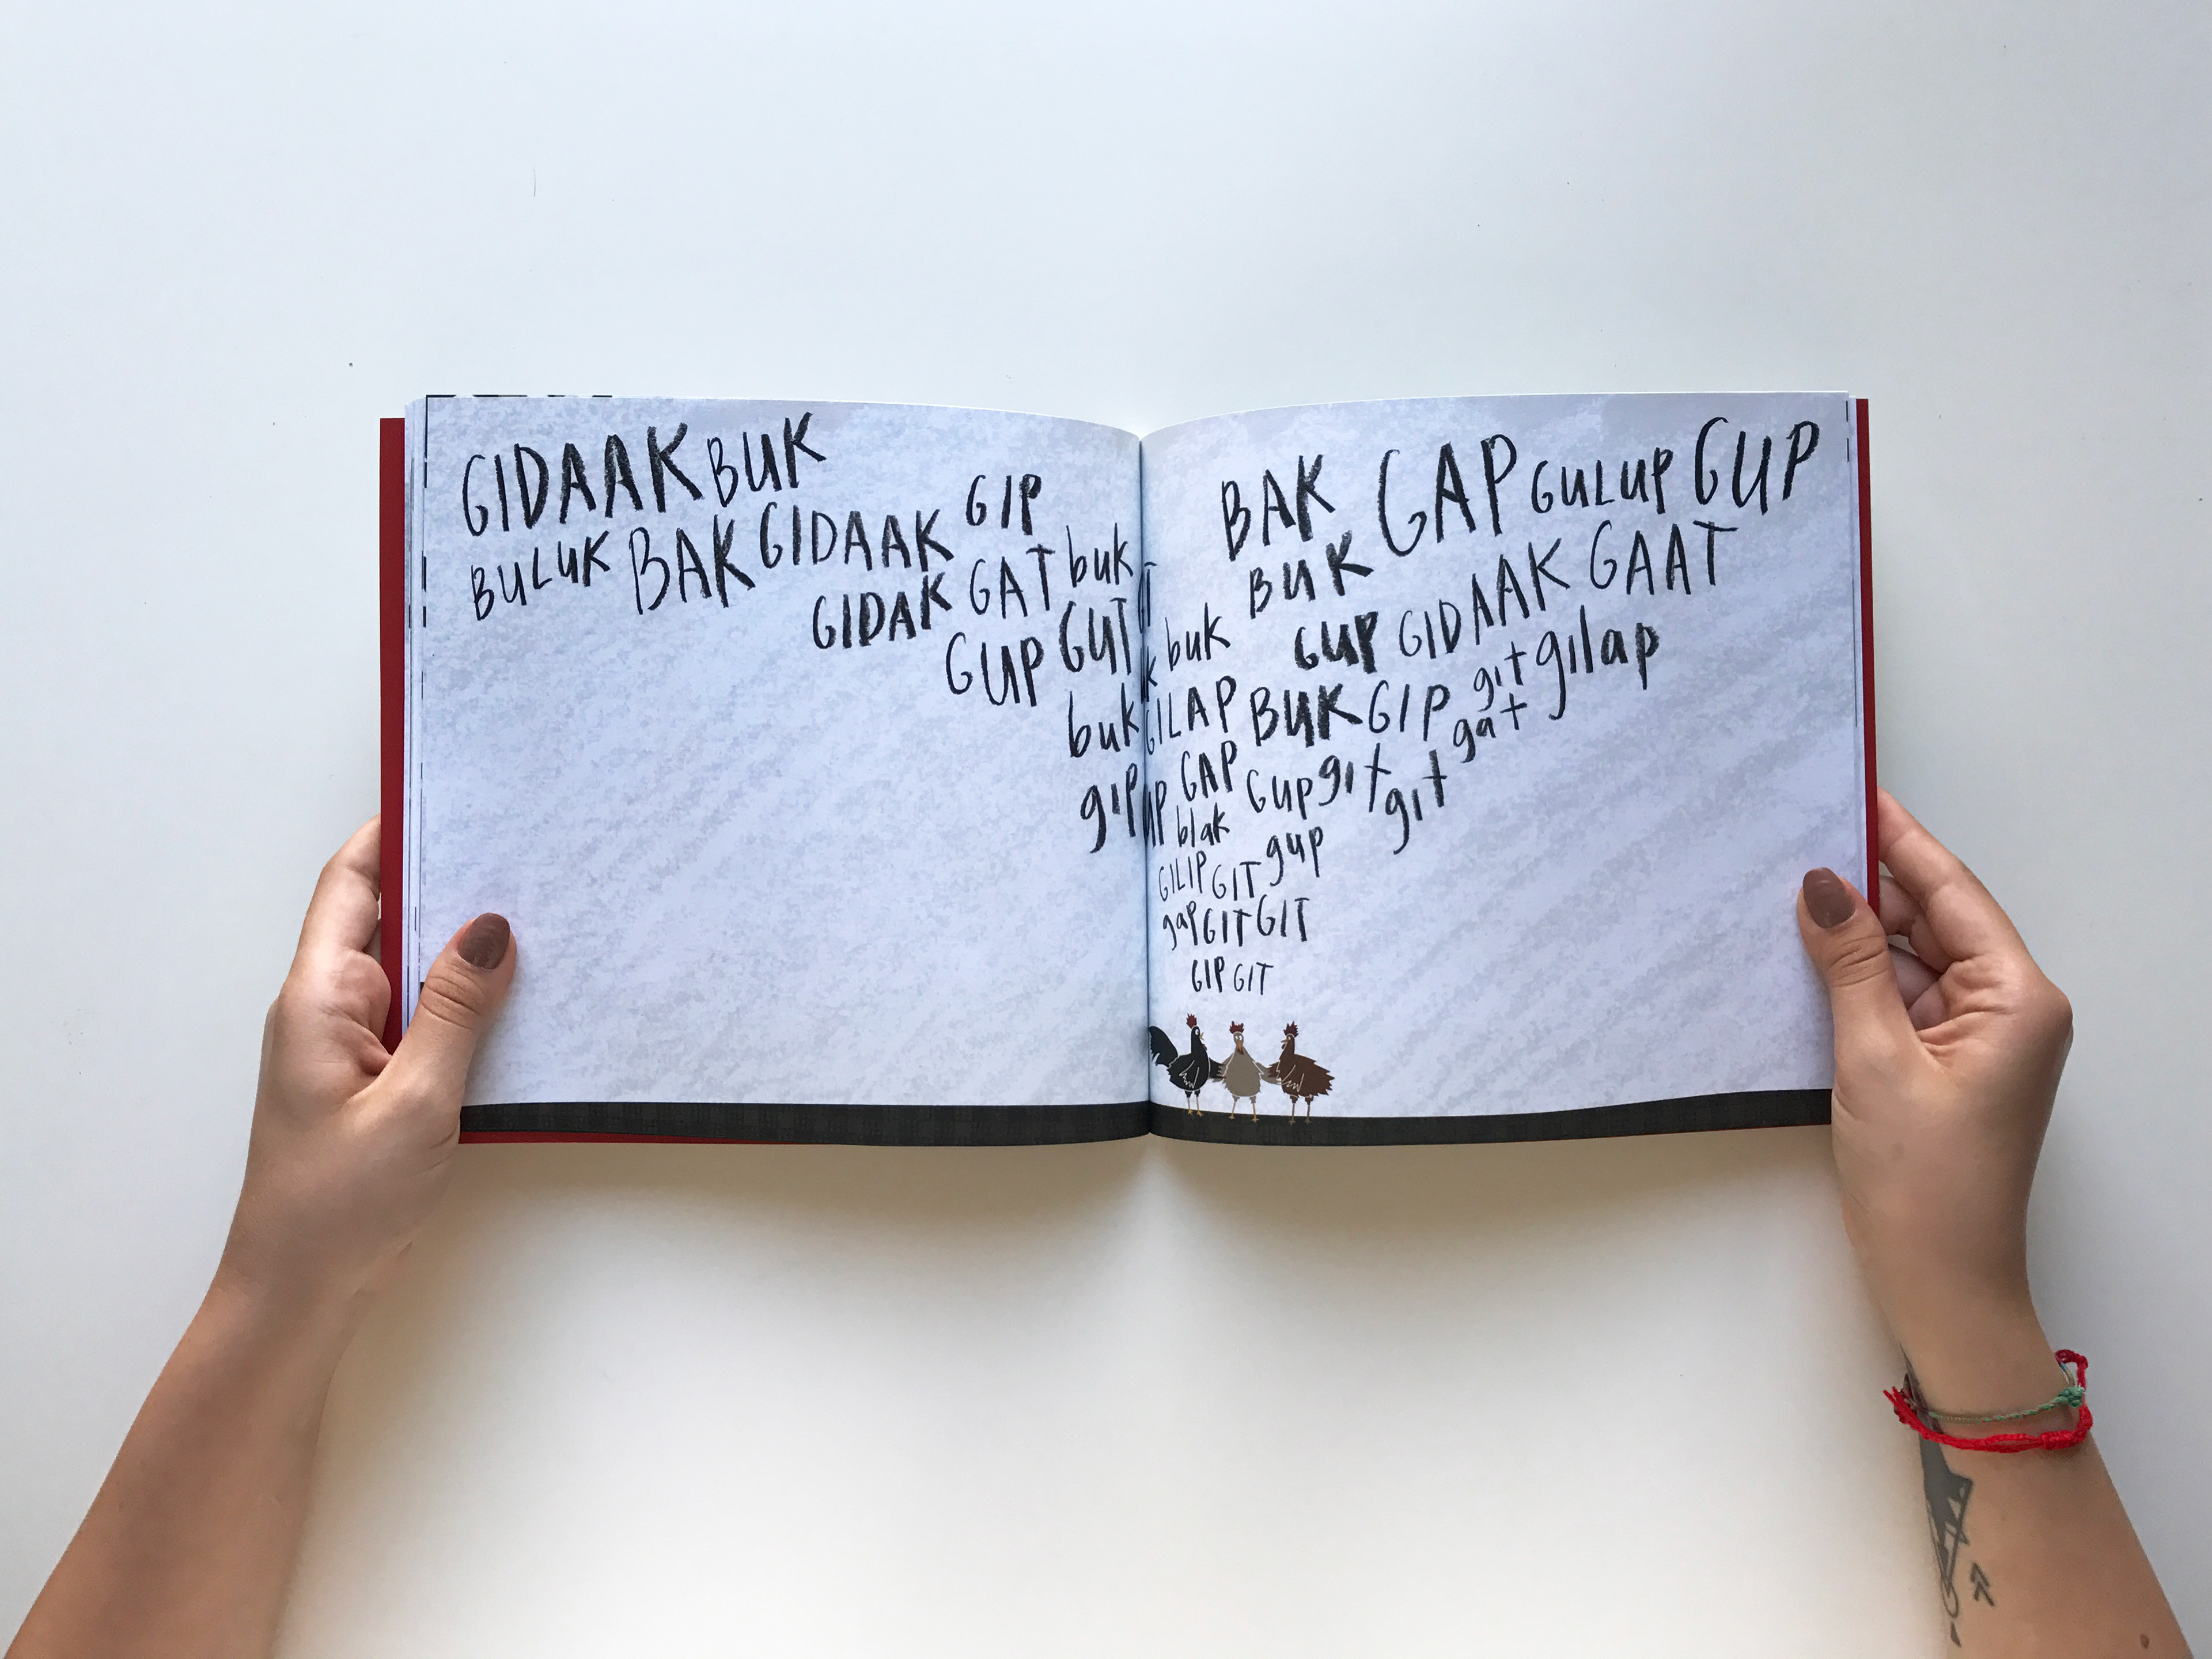 GIDAAK BUK
BULUK BAK GIDAAK GIP
GIDAK GAT buk
GUP GUT
buk
gip
BAK GAP GULUP GUP
BUK
buk GUP GIDAAK GAAT
GILAP BUK GIP git gilap
gat
GAP Gup git git
blak
GILIP GIT gup
gap GIT GIT
GIP GIT